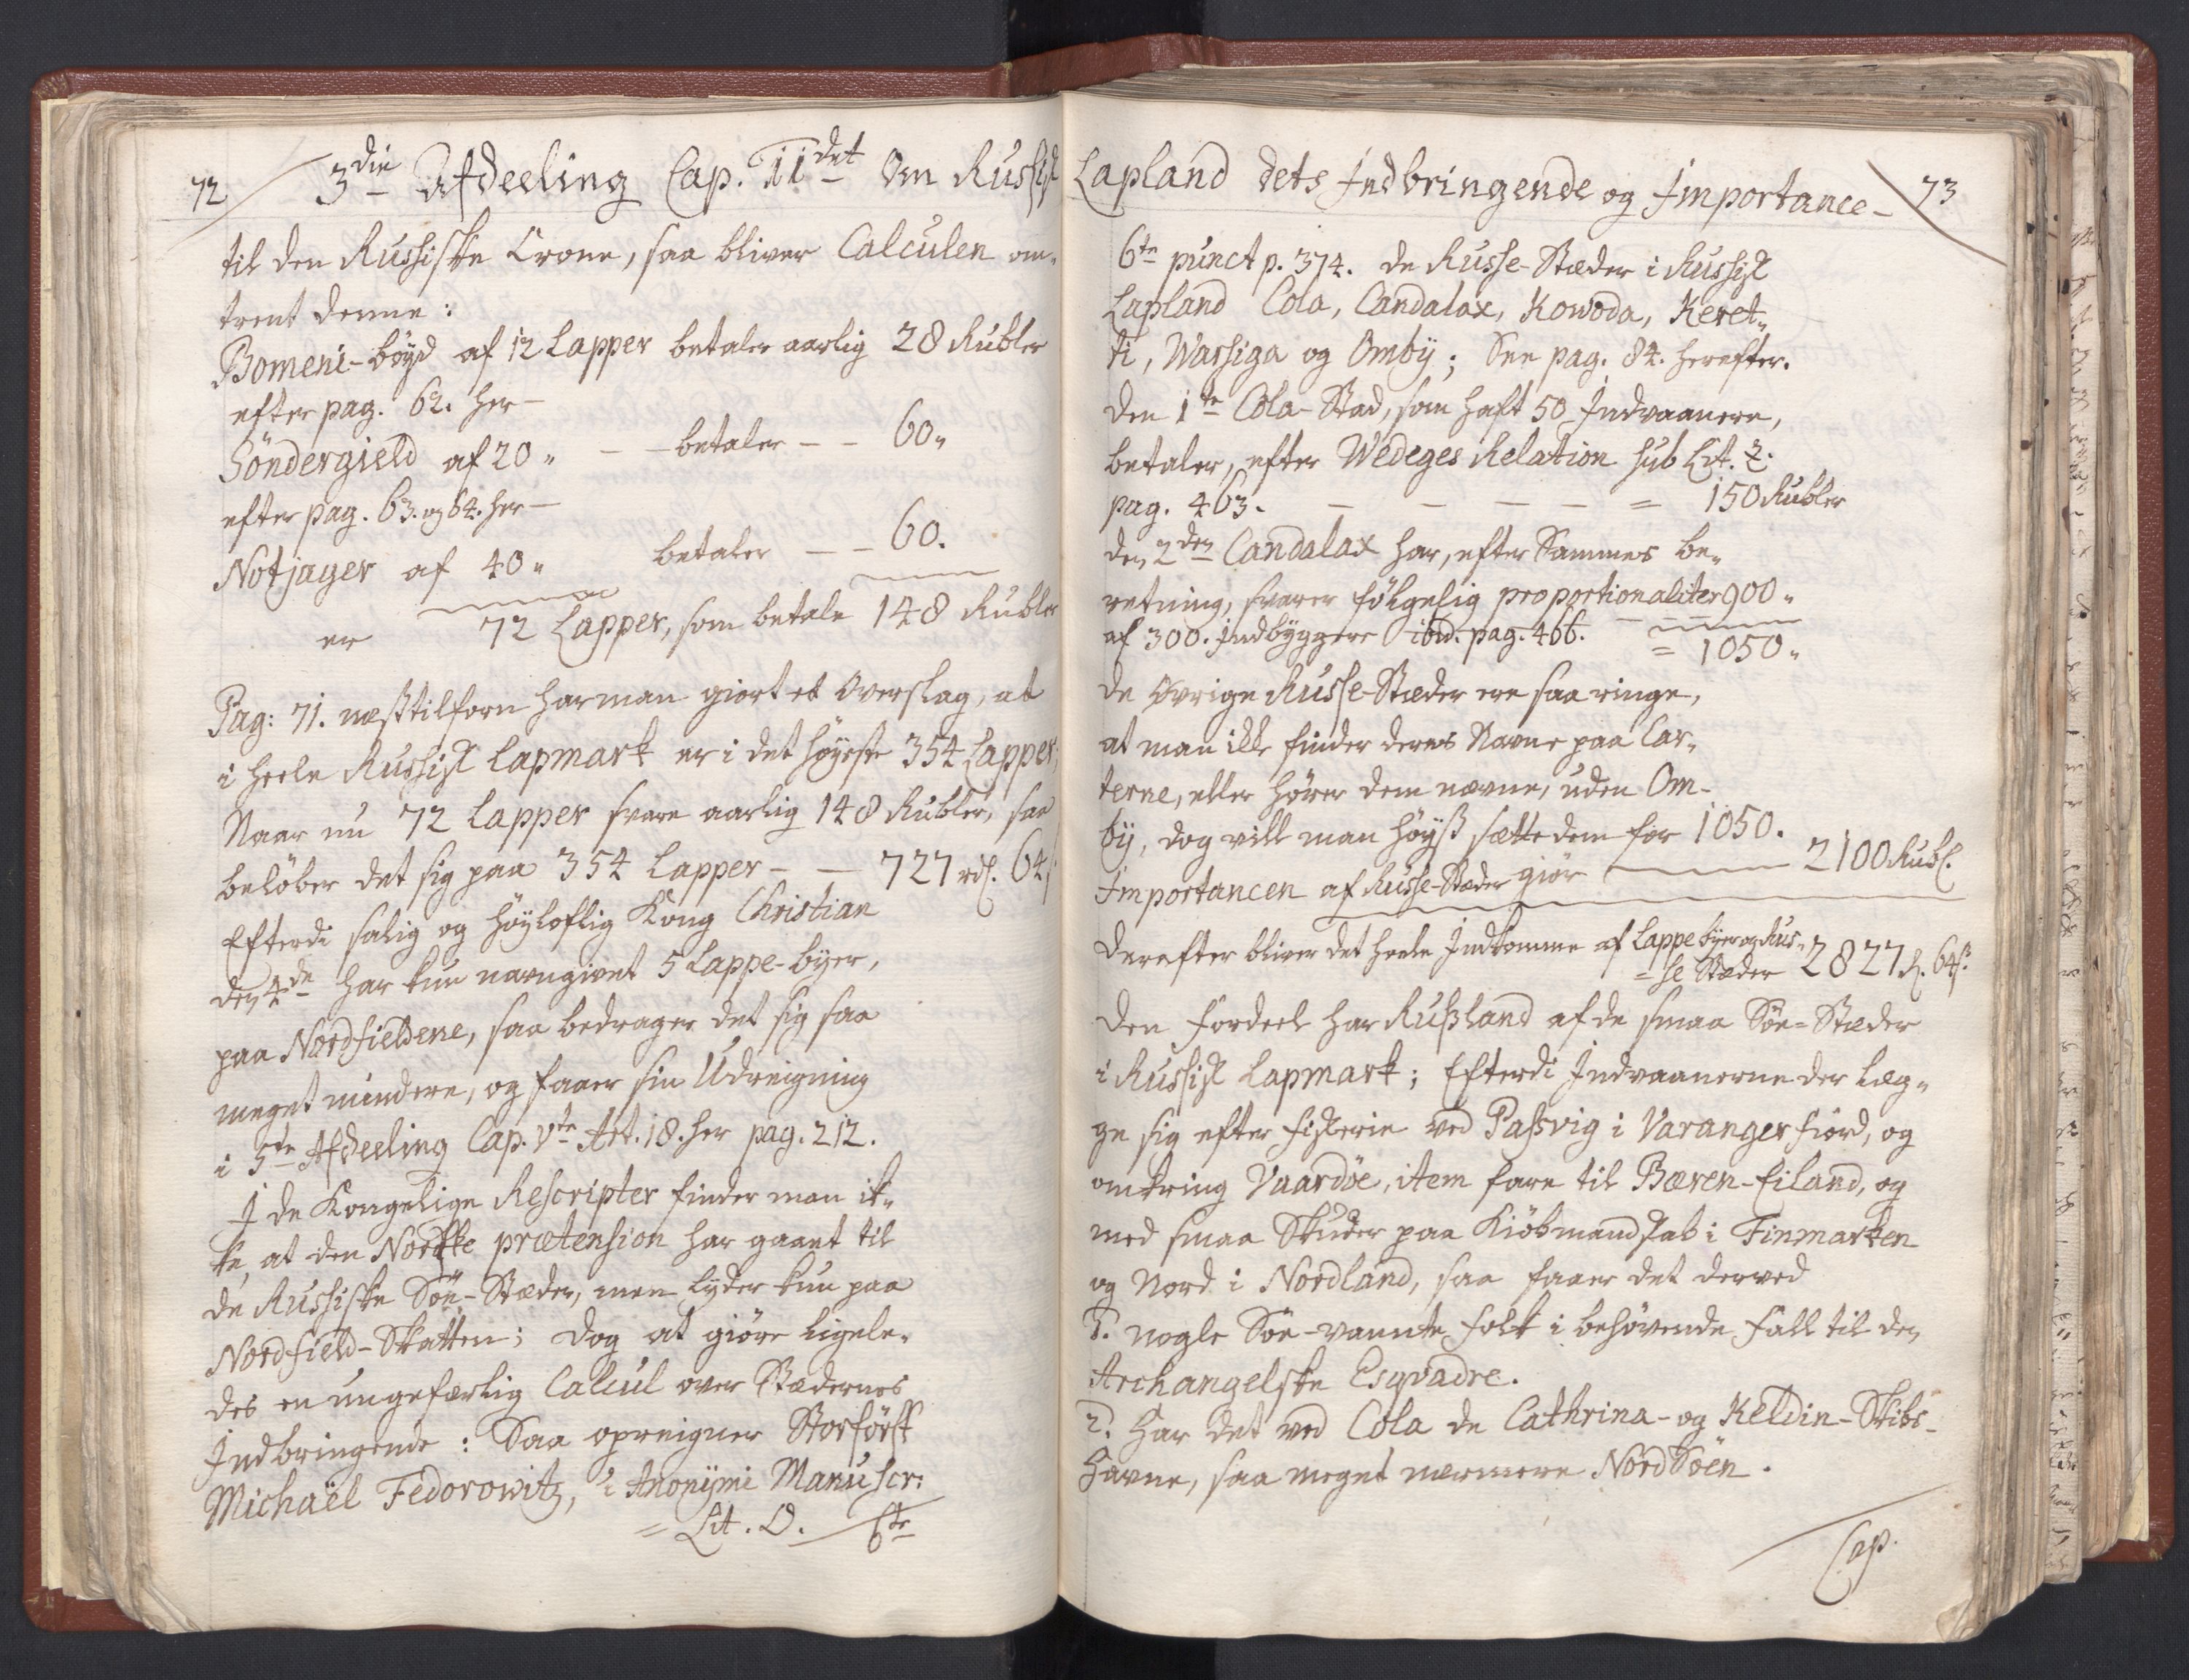 72
3die Afdeeling Cap. 11det Om Russisk
til den Russiske Crone, saa bliver Calculen om„
trent denne:
Bomeni-böyd af 12 Lapper betaler aarlig 28 Rubler
efter pag. 62. her—
Söndergield af 20 „ — — betaler — — 60„
efter pag. 63. og 64. her—
Notjager af 40 „ betaler — — 60.
er 72 Lapper, som betale 148 Rubler
Pag: 71. næsttilforn har man giort et Overslag, at
i heele Russisk Lapmark er i det høyeste 354 Lapper,
Naar nu 72 Lapper svare aarlig 148 Rubler, saa
beløber det sig paa 354 Lapper — — 727 rd. 64 s
Efterdi salig og höyloflig Kong Christian
den 4de har kun navngivet 5 Lappe-byer,
paa Nordfieldene, saa bedrager det sig saa
meget mindere, og faaer sin Udreigning
i 5te Afdeeling Cap. Vte Art. 18. her pag. 212.
I de Kongelige Rescripter finder man ik„
ke, at den Norske prætension har gaaet til
de Russiske Söe-Stæder, men lyder kun paa
Nordfield-Skatten; dog at giöre ligele„
des en ungefærlig Calcul over Stædernes
Indbringende: Saa opreigner Storförst
Michaël Fedorowitz, i Anonÿmi Manuscr:
= Lit. O. 6te
Lapland dets Indbringende og Importance— 73
6te punct p. 374. de Russe-Stæder i Russisk
Lapland Cola, Candalax, Kowoda, Keret„
ti, Warsiga og Ombÿ; See pag. 84. herefter.
Den 1te Cola-Stad, som haft 50 Indvaanere,
betaler, efter Wedeges Relation sub Lit. 2.
pag. 463. — — — — = 150 Rubler
den 2den Candalax har, efter Sammes be„
retning, svarer fölgelig proportionaliter 900 „
af 300. Indbyggere ibid. pag. 466. = 1050 „
de övrige Russe-Stæder ere saa ringe,
at man ikke finder deres Navne paa Car„
terne, eller hörer dem nævne, uden Om-
bÿ, dog vill man höyst sætte dem for 1050.
Importancen af Russe-Stæder giör — 2100 Rubl.
Derefter bliver det heele Indkomme af Lappebÿer og Rus„
= se Stæder 2827 R. 64 s.
Den Fordeel har Rusland af de smaa Söe-Stæder
i Russisk Lapmark; Efterdi Indvaanerne der læg„
ge sig efter Fiskerie ved Pasvig i Varangerfiord, og
omkring Vaardöe, item fare til Bæren-Eiland, og
med smaa Skuder paa Kiöbmandskab i Finmarken
og Nord i Nordland, saa faaer det derved
1. nogle Söe-vannte Folk i behövende fall til den
Archangelske Esqvadre.
2. Har det ved Cola de Cathrina- og Keldin-Skibs-
Havne, saa meget nærmere Nord Söen.
Cap.